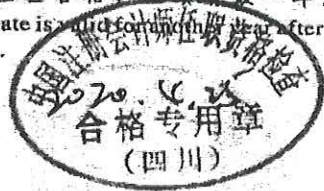 ate is valid for another year after
中国注册会计师任职资格检查
合格专用章
(四川)